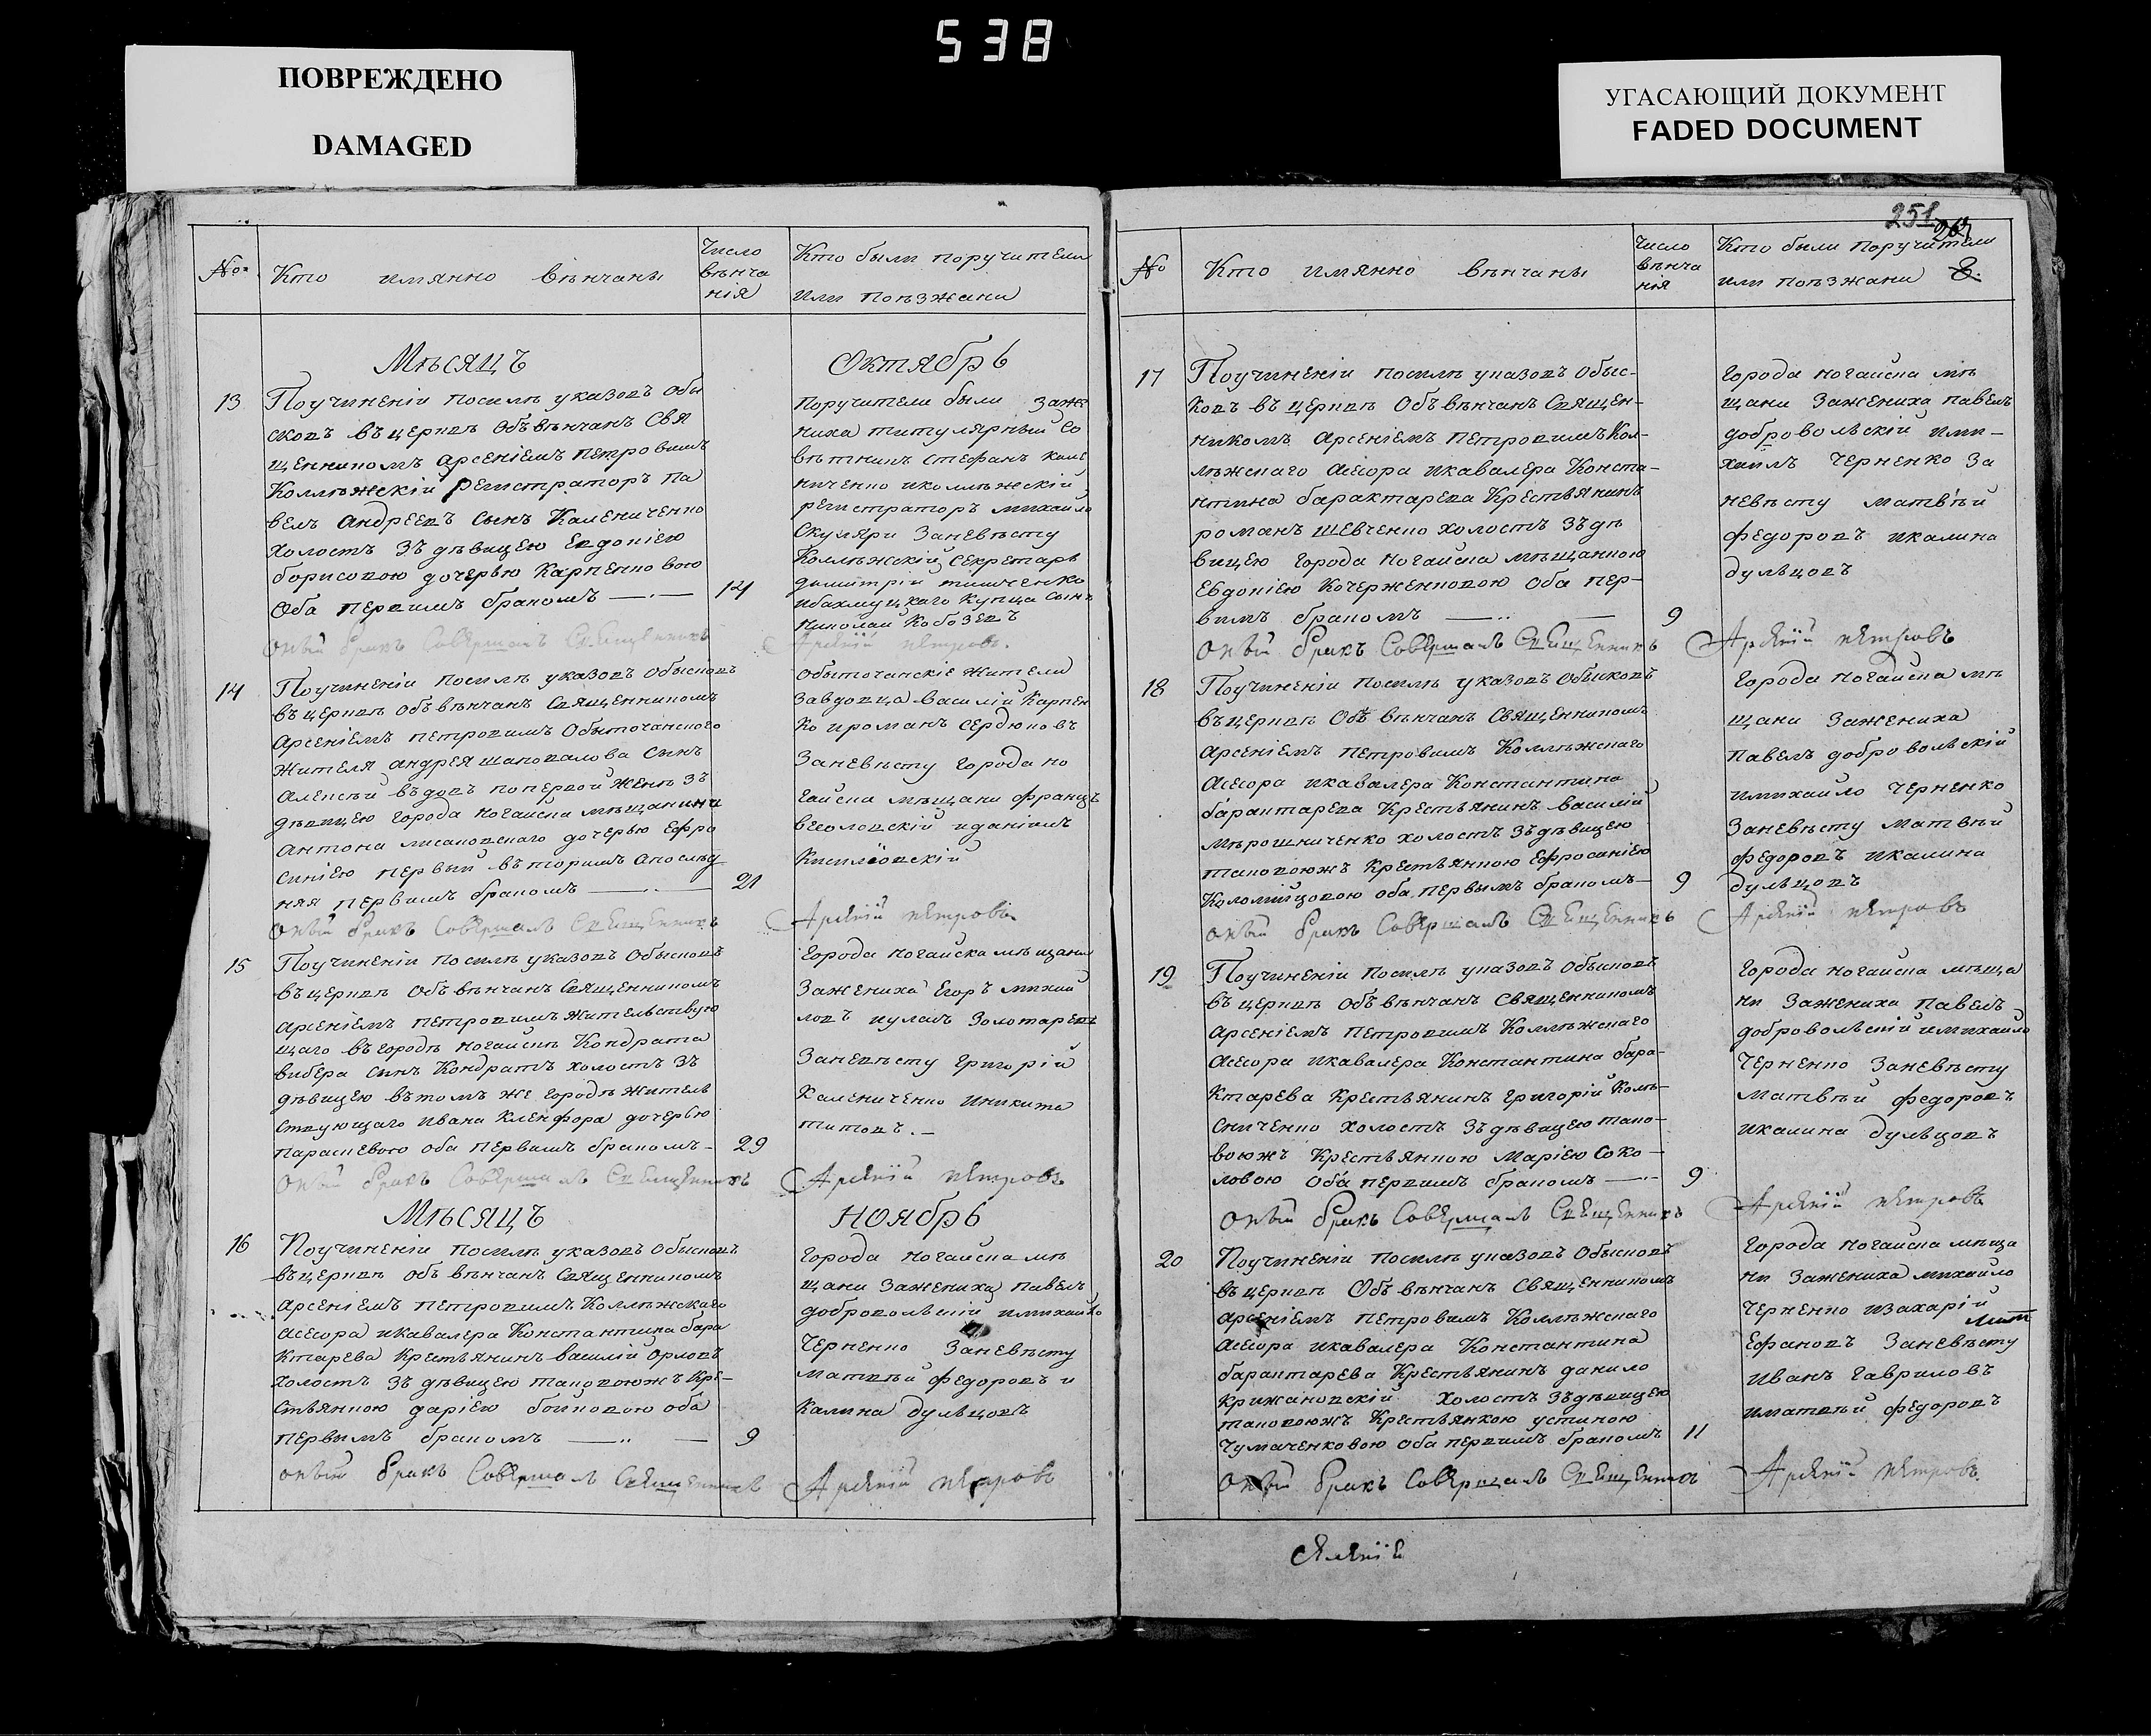 538
ПОВРЕЖДЕНО
DAMAGED
УГАСАЮЩИЙ ДОКУМЕНТ
FADED DOCUMENT
№
Кто имянно вѣнчаны
Число вѣнчанія
Кто были поручители
или поѣзжани
Мѣсяцъ Октябрь
13
Поучиненіи посилѣ указовъ обы
сковъ въ церквѣ обѣвѣнчанъ Свя
щенникомъ арсеніемъ петровымъ
Коллѣжскій Регистраторъ па
велъ андреевъ сынъ Калениченко
холостъ зъ дѣвицею Евдокіею
борисовою дочерью Карпенковою
Оба первимъ бракомъ
14
поручители были заже
ниха титулярный со
вѣтникъ Стефанъ кале
ниченко иколлѣжскій
регистраторъ михайло
Скуляри Заневѣсту
Коллѣжскій секретарь
димитрій тимченко
ибахмуцкаго купца сынъ
николай Кобозевъ
оный бракъ Совершалъ Священникъ Арсеній петровъ
14
Поучиненіи посилѣ указовъ обысковъ
въ церквѣ обѣвѣнчанъ Священникомъ
арсеніемъ петровимъ Обыточанского
жителя андрея шаповалова сынъ
алексѣй въдовъ попервой женѣ зъ
дѣвицею города ногайска мѣщанина
антона лисаковского дочерью Ефро
синіею первый въторимъ апослѣд
няя первимъ бракомъ
21
Обыточанскіе жители
завдовца василій Карпен
ко ироманъ Сердюковъ
Заневѣсту города но
гайска мѣщани францъ
веселовскій иданіилъ
оный бракъ Совершалъ Священникъ Арсеній петровъ
15
Поучиненіи посилѣ указовъ обысковъ
въ церквѣ обѣвѣнчанъ Священникомъ
арсеніемъ петровимъ жительствую
щаго въ городѣ ногайскѣ Кондрата
вибера сынъ Кондратъ холостъ зъ
дѣвицею вътомъ же городѣ житель
ствующаго ивана Кленфора дочерью
параскевою оба первимъ бракомъ
29
Города ногайска мѣщани
Зажениха Егоръ михай
ловъ иуласъ Золотаревъ
Заневѣсту григорій
Калениченко иникита
титовъ.
оный бракъ Совершалъ Священникъ Арсеній петровъ
Мѣсяцъ Ноябрь
16
Поучиненіи посилѣ указовъ обысковъ
въ церквѣ обѣвѣнчанъ Священникомъ
арсеніемъ петровимъ Коллѣжскаго
асесора икавалера Константина бара
ктарева Крестьянинъ василій орловъ
холостъ зъ дѣвицею таковоюжъ кре-
стьянкою даріею бойковою оба
первымъ бракомъ
9
города ногайска мѣ
щани Зажениха павелъ
добровольскій имихайло
Черненко Заневѣсту
матвѣй федоровъ и
Калина дульцовъ
оный бракъ Совершалъ Священникъ Арсеній петровъ
251
8.
№
Кто имянно вѣнчаны
Число вѣнчанія
Кто были поручители
или поѣзжани
17
Поучиненіи посилѣ указовъ обыс-
ковъ въ церквѣ Обѣвѣнчанъ Священ-
никомъ арсеніемъ петровимъ Кол-
лѣжскаго асесора икавалера Конста-
нтина барактарева Крестьянинъ
романъ шевченко холостъ зъдѣ
вицею города ногайска мѣщанкою
Евдокіею Кочерженковою оба пер-
вимъ бракомъ
9
Города ногайска мѣ
щани Зажениха павелъ
добровольскій ими-
хаилъ Черненко за
невѣсту матвѣй
федоровъ икалина
дульцовъ
оный бракъ Совершалъ Священникъ Арсеній петровъ
18
Поучиненіи посилѣ указовъ обысковъ
въ церквѣ Обѣвѣнчанъ Священникомъ
арсеніемъ петровимъ Коллѣжскаго
асесора икавалера Константина
барактарева Крестьянинъ василій
мѣрошниченко холостъ зъдѣвицею
таковоюжъ Крестьянкою Ефросиніею
Коломійцовою оба первымъ бракомъ
9
Города ногайска мѣ
щани Зажениха
павелъ добровольскій
имихайло Черненко
Заневѣсту матвѣй
федоровъ икалина
дульцовъ
оный бракъ Совершалъ Священникъ Арсеній петровъ
19
Поучиненіи посилѣ указовъ обысковъ
въ церквѣ обѣвѣнчанъ Священникомъ
арсеніемъ петровимъ Коллѣжскаго
асесора икавалера Константина бара-
ктарева Крестьянинъ григорій Колѣ-
сниченко холостъ зъдѣвицею тако-
воюжъ Крестьянкою Маріею Соко-
ловою оба первимъ бракомъ
9
Города ногайска мѣща
ни Зажениха павелъ
добровольскій имихайло
Черненко Заневѣсту
матвѣй федоровъ
икалина дульцовъ
оный бракъ Совершалъ Священникъ Арсеній петровъ
20
Поучиненіи посилѣ указовъ обысковъ
въ церквѣ Обѣвѣнчанъ Священникомъ
арсеніемъ петровимъ Коллѣжскаго
асесора икавалера Константина
барактарева Крестьянинъ данило
крижановскій холостъ зъдѣвицею
таковоюжъ Крестьянкою устиною
Чумаченковою оба первимъ бракомъ
11
Города ногайска мѣща
ни Зажениха михайло
Черненко изахарій
Ефановъ Заневѣсту
иванъ гавриловъ
иматвѣй федоровъ
оный бракъ Совершалъ Священникъ Арсеній петровъ